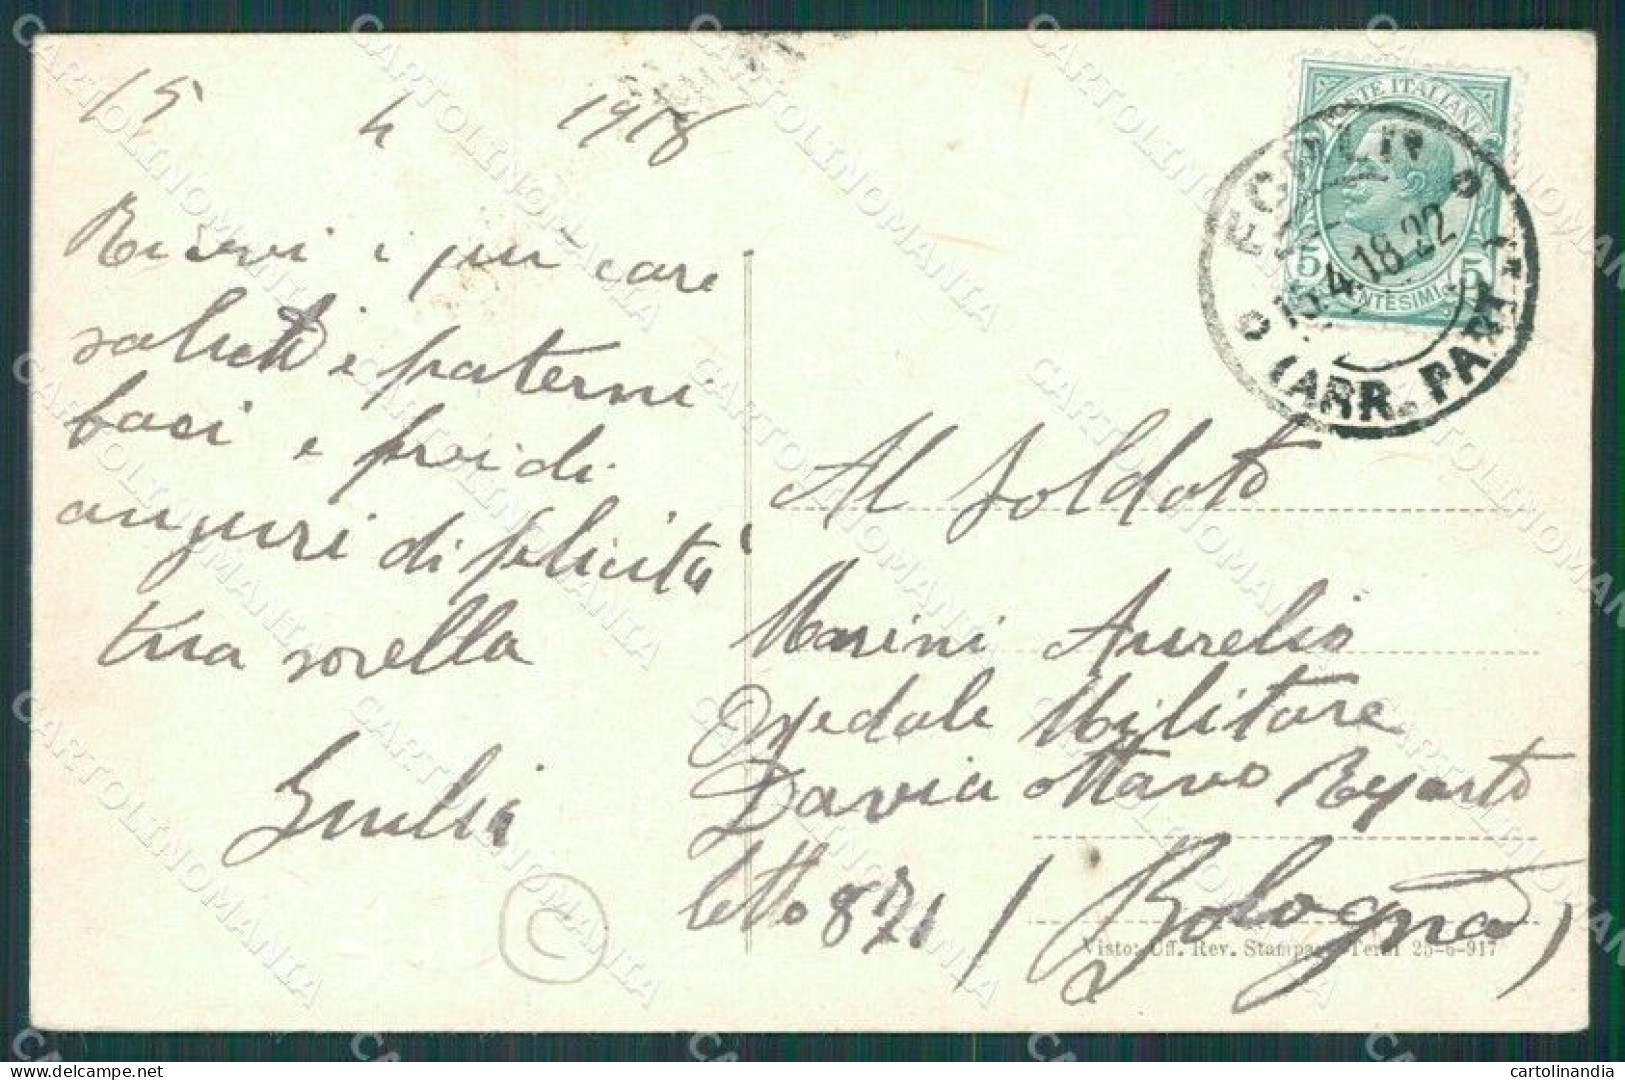 15 4 1918
Ricevi i piu cari
saluti e paterni
baci e proidi
auguri di felicità
tua sorella
Giulia
C
POSTE ITALIANE
5 5
CENTESIMI
15.4.18.22
(ARR. PART.)
Al Soldato
Marini Aurelio
Ospedale Militare
Davia ottavo Reparto
letto 871 (Bologna)
Visto: Uff. Rev. Stampa Terni 25-6-917
CARTOLINOMANIA
cartolinandia